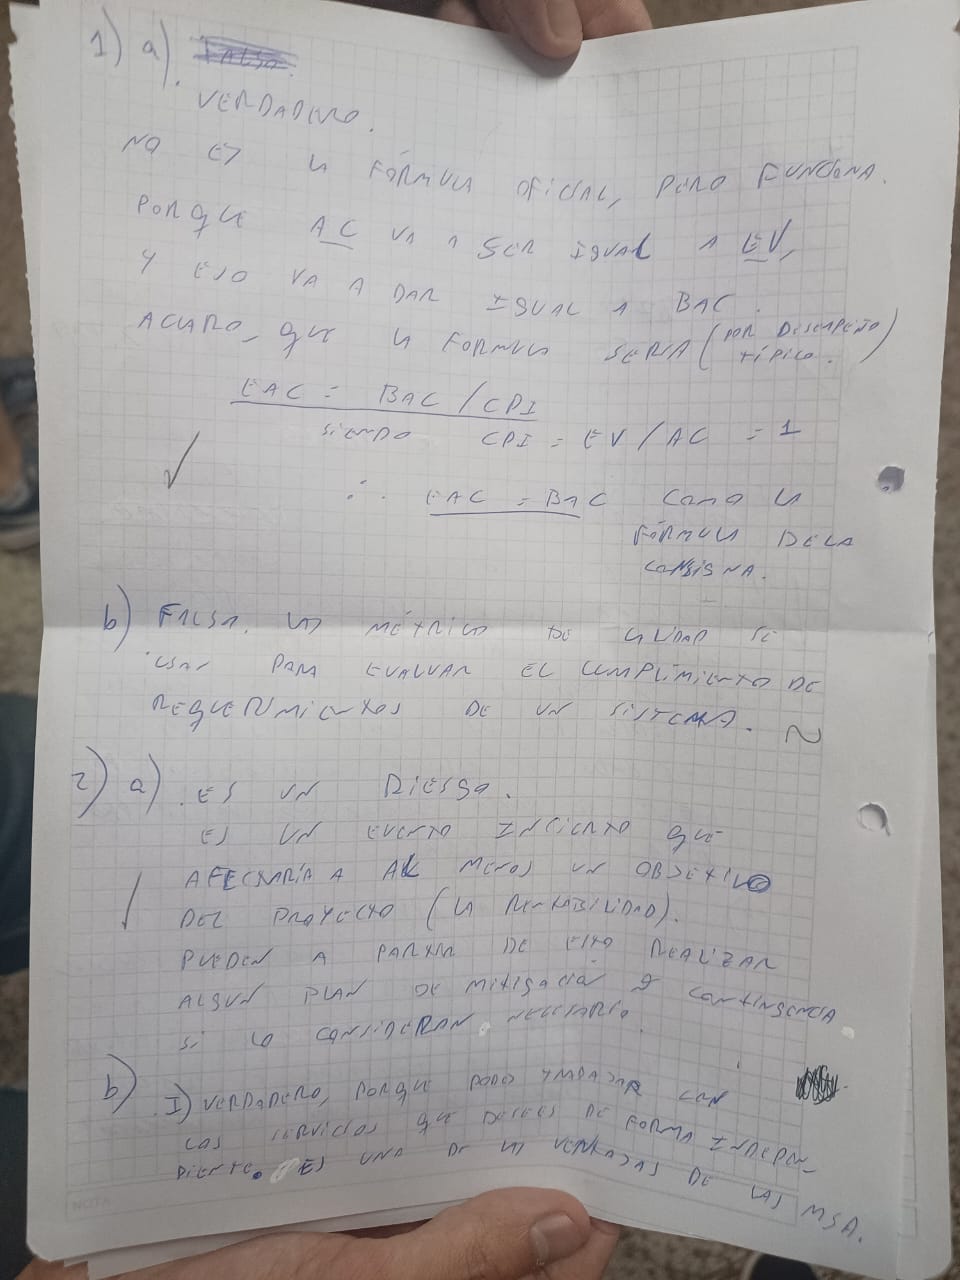 1) a). FALSA.
VERDADERO.
NO ES LA FÓRMULA OFICIAL, PERO FUNCIONA.
PORQUE AC VA A SER IGUAL A EV,
Y ESO VA A DAR IGUAL A BAC.
ACLARO, QUE LA FORMULA SERIA (POR DESEMPEÑO TÍPICO.)
EAC = BAC / CPI
SIENDO CPI = EV / AC = 1
∴ EAC = BAC COMO LA
FÓRMULA DE LA
CONSIGNA.
b) FALSA. LAS MÉTRICAS DE CALIDAD SE
USAN PARA EVALUAR EL CUMPLIMIENTO DE
REQUERIMIENTOS DE UN SISTEMA. ~
2) a). ES UN RIESGO.
ES UN EVENTO INCIERTO QUE
AFECTARÍA A AL MENOS UN OBJETIVO
DEL PROYECTO (LA RENTABILIDAD).
PUEDEN A PARTIR DE ESTO REALIZAR
ALGUN PLAN DE MITIGACIÓN Y CONTINGENCIA
SI LO CONSIDERAN NECESARIO.
b) I) VERDADERO, PORQUE PODES TRABAJAR CON
LOS SERVICIOS QUE DESEES DE FORMA INDEPEN-
DIENTE. ES UNA DE LAS VENTAJAS DE LAS MSA.
NOTA